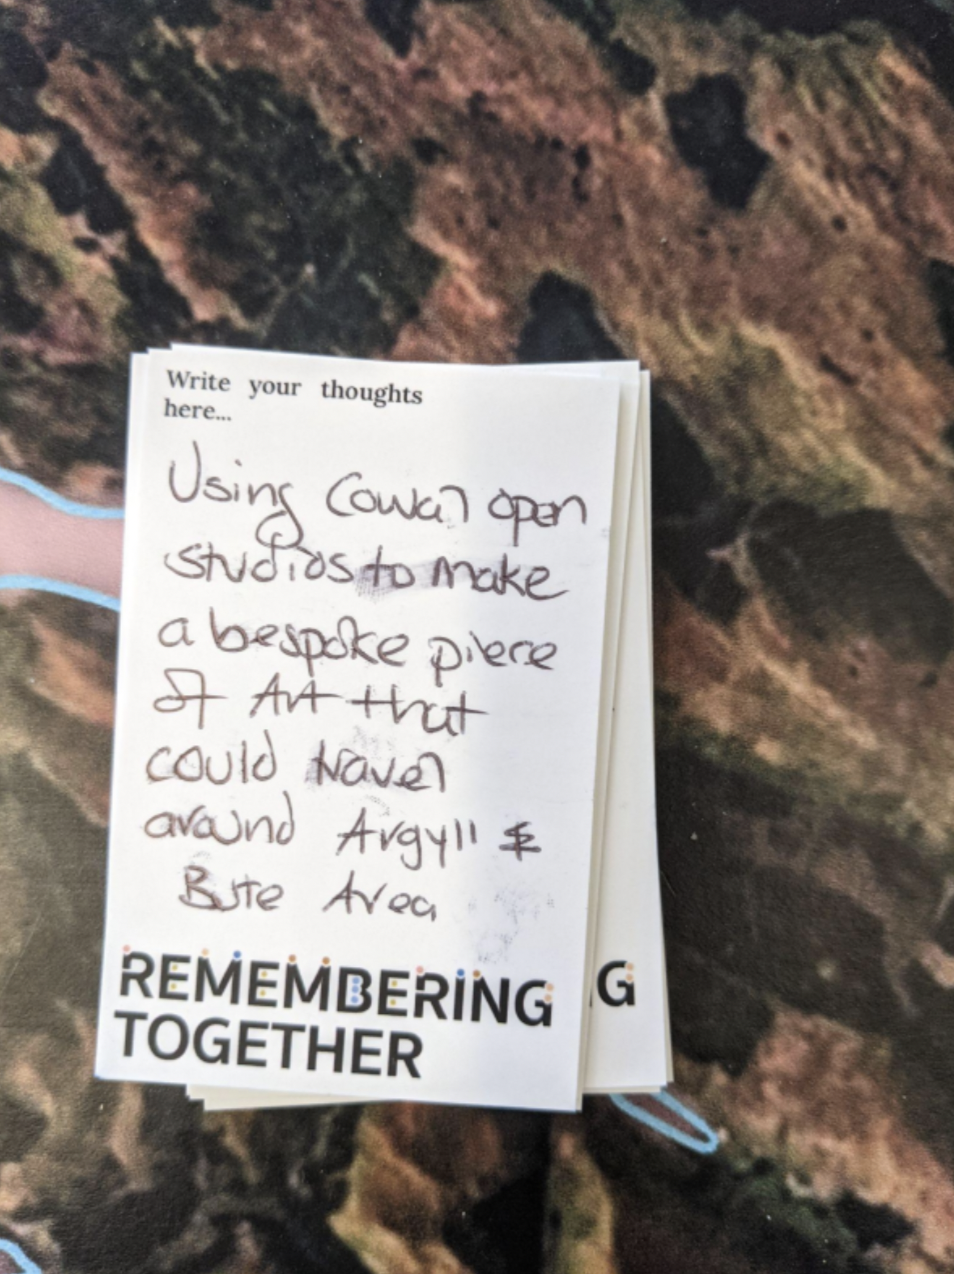 Write your thoughts
here...
Using Cowal open
studios to make
a bespoke piece
of Art that
could travel
around Argyll &
Bute Area
REMEMBERING
TOGETHER
G